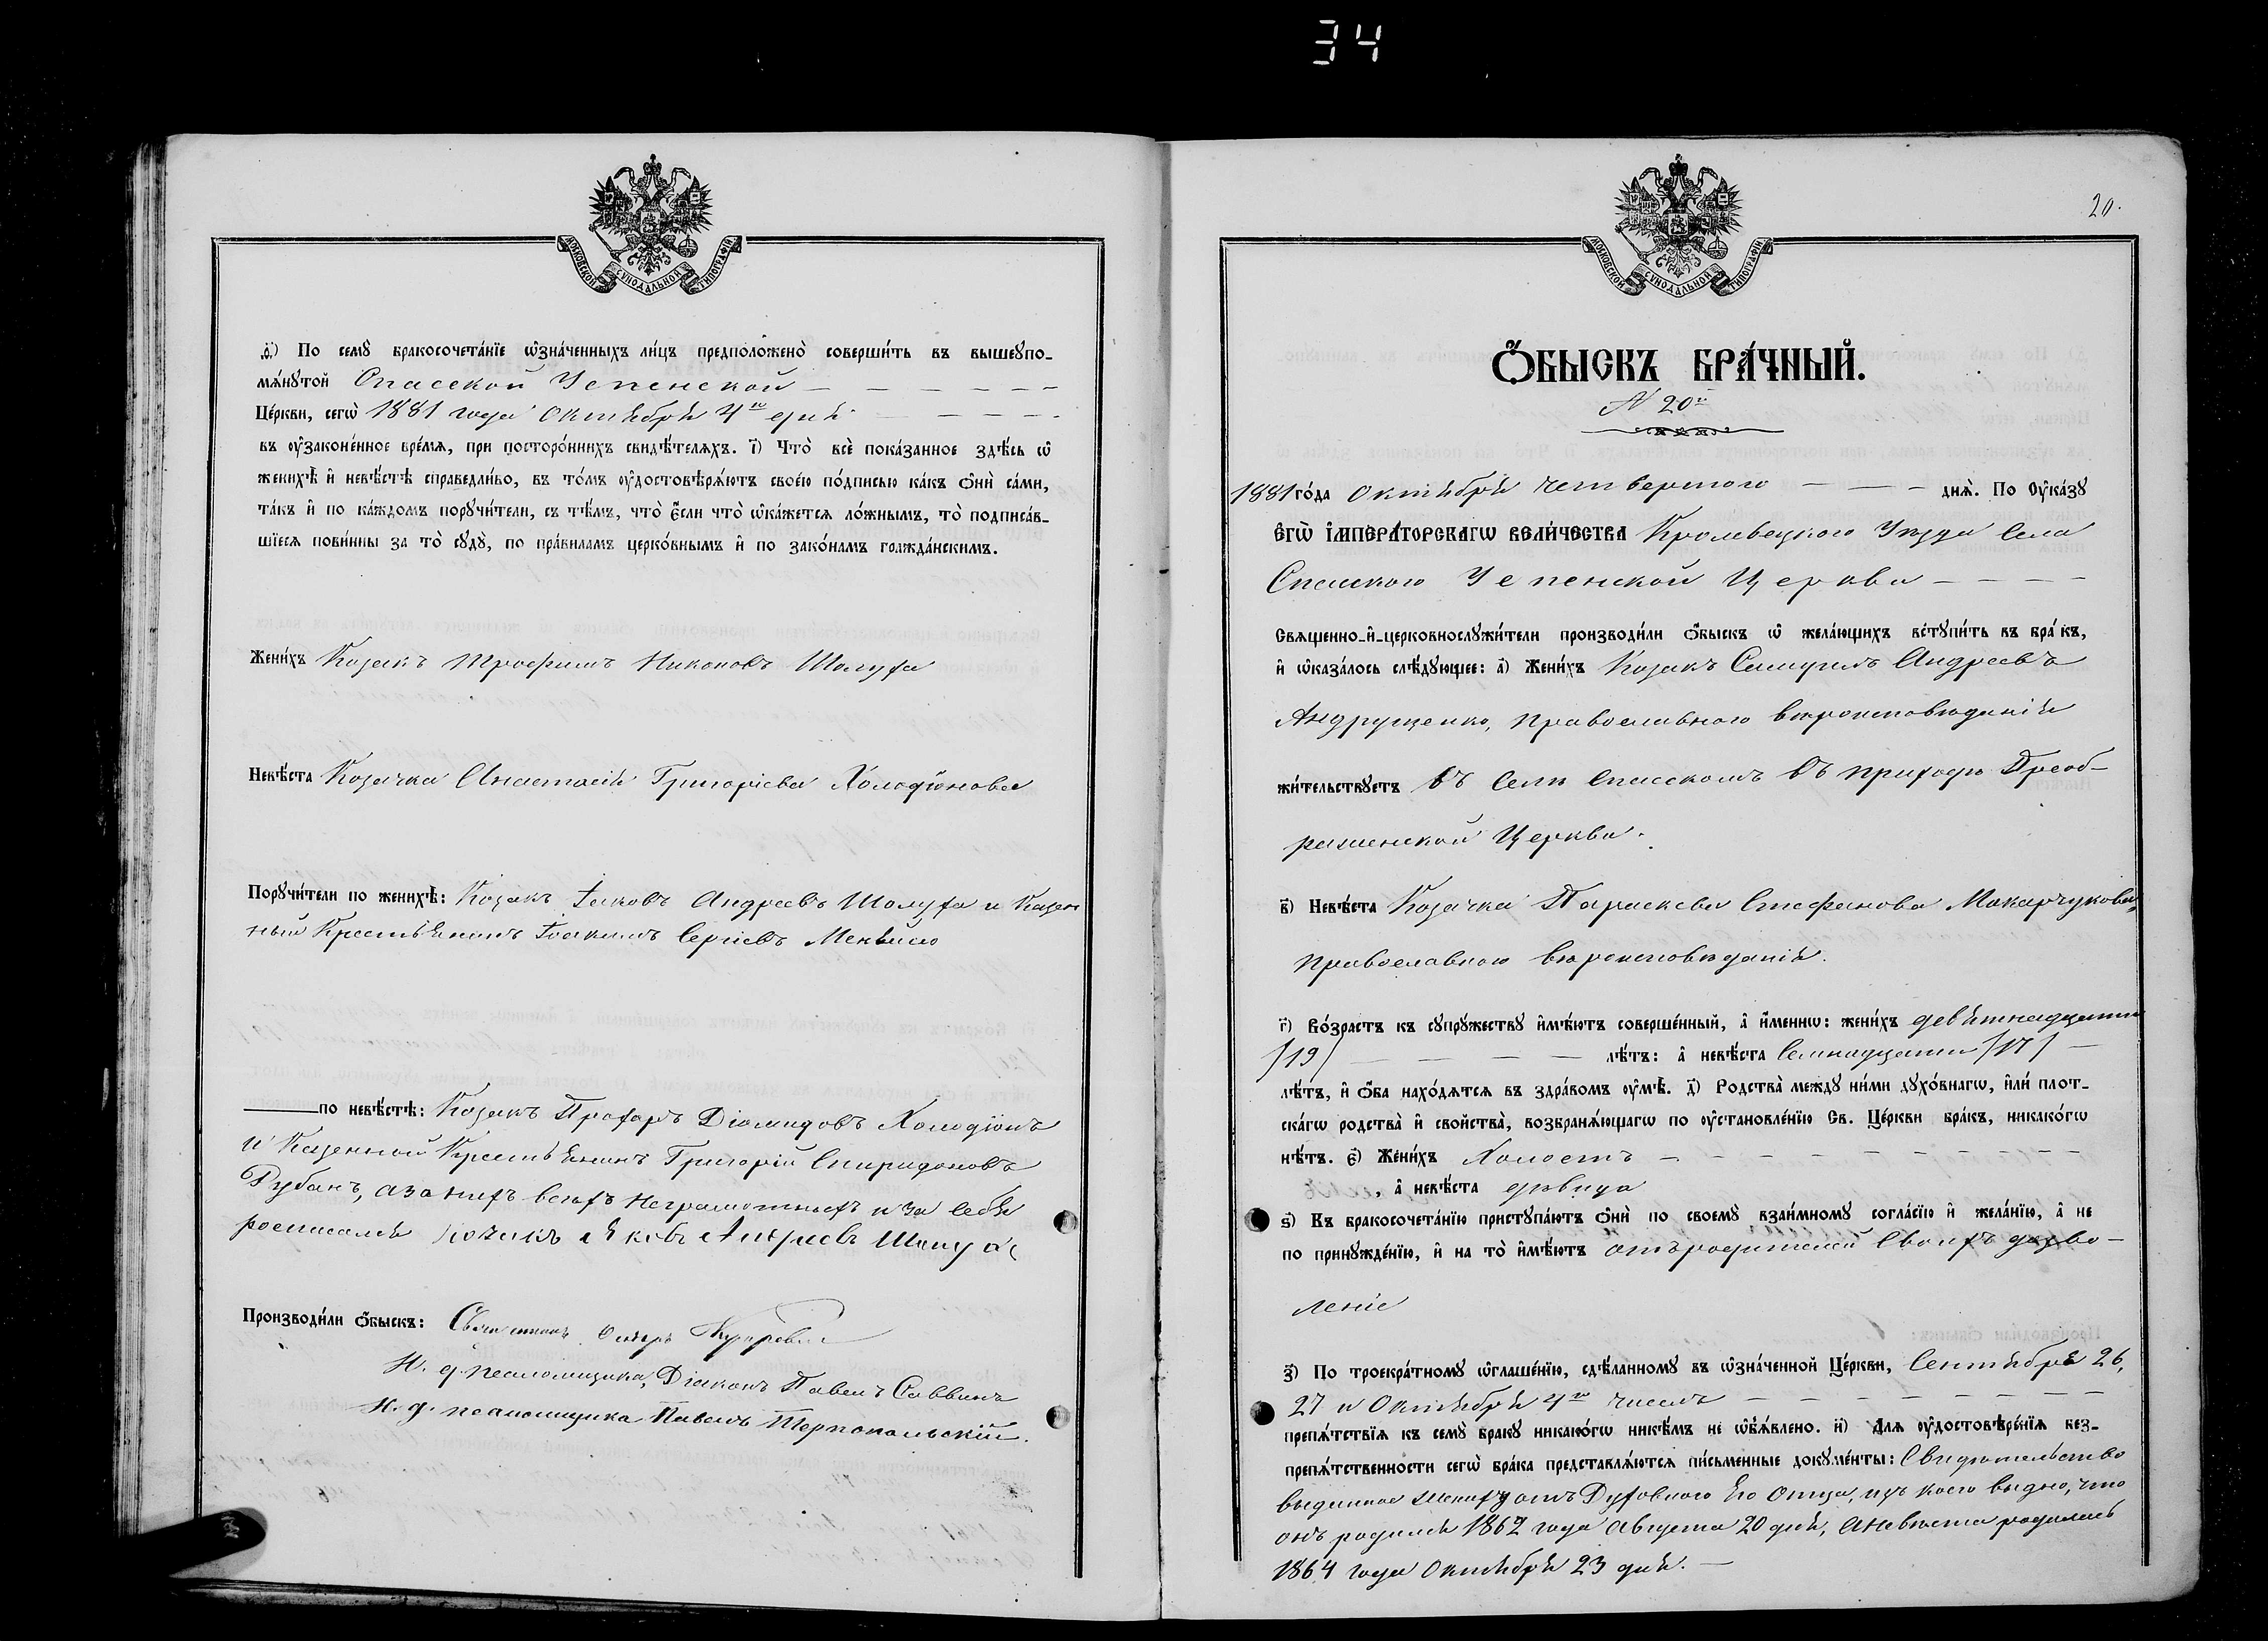 34
МОСКОВСКОЙ СУНОДАЛЬНОЙ ТИПОГРАФІИ
ѳ҃) По семꙋ̀ бракосочета́нїе ѡ҆зна́ченныхъ ли́цъ предположено̀ соверши́ть въ вышеꙋпо-
мѧ́нꙋтой Спасской Успенской
Це́ркви, сегѡ̀ 1881 года Октября 4го дня
въ ᲂу҆законе́нное вре́мѧ, при посторо́ннихъ свидѣ́телѧхъ. і҃) Что̀ всѐ пока́занное здѣ́сь ѡ҆
женихѣ̀ и҆ невѣ́стѣ справедли́во, въ то́мъ ᲂу҆достовѣрѧ́ютъ свое́ю по́дписью ка́къ ѻ҆нѝ са́ми,
та́къ и҆ по ка́ждомъ порꙋчи́тели, съ тѣ́мъ, что̀ є҆́сли что̀ ѡ҆ка́жетсѧ ло́жнымъ, то̀ подписа́в-
шїесѧ пови́нны за то̀ сꙋдꙋ̀, по пра́виламъ церко́внымъ и҆ по зако́намъ гражда́нскимъ.
Жени́хъ Козакъ Трофимъ Никоновъ Шалуфа
Невѣ́ста Козачка Анастасія Григоріева Холодіонова
Порꙋчи́тели по женихѣ̀: Козакъ Іаковъ Андреевъ Шалуфа и Казен
ный Крестьянинъ Іоакимъ Сергіевъ
по невѣ́стѣ: Козакъ Прохоръ Діомидовъ Холодіонъ
и Казенной Крестьянинъ Григорій Спиридоновъ
Рубанъ, а за нихъ всехъ неграмотныхъ и за себя
росписался козакъ Яковъ Андреевъ
Производи́ли ѻ҆́быскъ: Священникъ
И. д. псаломщика, Діаконъ Павелъ Саввинъ
И. д. псаломщика Павелъ Терпопольскій.
20.
МОСКОВСКОЙ СУНОДАЛЬНОЙ ТИПОГРАФІИ
Ѻ҆́БЫСКЪ БРА́ЧНЫЙ.
№ 20й
1881 го́да Октября четвертого днѧ̀. По Оу҆ка́зꙋ
є҆гѡ̀ и҆мпера́торскагѡ вели́чества Кролевецкого Уезда Села
Спаского Успенской Церкви
Свѧщенно-и҆-церковнослꙋжи́тели производи́ли ѻ҆́быскъ ѡ҆ жела́ющихъ встꙋпи́ть въ бра́къ,
и҆ ѡ҆каза́лось слѣ́дꙋющее: а҃) Жени́хъ Козакъ Самуилъ Андреевъ
Андрущенко, православного вѣроисповѣданія
жи́тельствꙋетъ въ Селѣ Спасскомъ въ приходѣ Преоб-
раженской Церкви.
в҃) Невѣ́ста Козачка Параскева Стефанова Макарчукова,
Православного вѣроисповѣданія.
г҃) Во́зрастъ къ сꙋпрꙋ́жествꙋ и҆мѣ́ютъ соверше́нный, а҆ и҆́меннѡ: жени́хъ девятнадцати
/19/ лѣ́тъ: а҆ невѣ́ста Семнадцати /17/
лѣ́тъ, и҆ ѻ҆́ба нахо́дѧтсѧ въ здра́вомъ ᲂу҆мѣ̀. д҃) Родства̀ междꙋ ни́ми дꙋхо́внагѡ, и҆лѝ плот-
ска́гѡ родства̀ и҆ сво́йства, возбранѧ́ющагѡ по ᲂу҆становле́нїю Св. Це́ркви бра́къ, никако́гѡ
нѣ́тъ. є҃) Жени́хъ Холостъ
, а҆ невѣ́ста девица
ѕ҃) Къ бракосочета́нїю пристꙋпа́ютъ ѻ҆нѝ по своемꙋ̀ взаи́мномꙋ согла́сїю и҆ жела́нїю, а҆ не
по принꙋжде́нїю, и҆ на то̀ и҆мѣ́ютъ отъ родителей Своихъ дозво-
леніе
з҃) По троекра́тномꙋ ѡ҆глаше́нїю, сдѣ́ланномꙋ въ ѡ҆зна́ченной Це́ркви, Сентября 26,
27 и Октября 4го чиселъ
препѧ́тствїѧ къ семꙋ̀ бра́кꙋ никако́гѡ никѣ́мъ не ѡ҆б̾ѧ́влено. и҃) Длѧ ᲂу҆достовѣре́нїѧ без-
препѧ́тственности сегѡ̀ бра́ка представлѧ́ютсѧ пи́сьменные докꙋме́нты: Свидѣтельство
выданное жениху отъ Духовного Его Отца, изъ коего видно, что
онъ родился 1862 года Августа 20 дня, а невѣста родилась
1864 года Октября 23 дня.